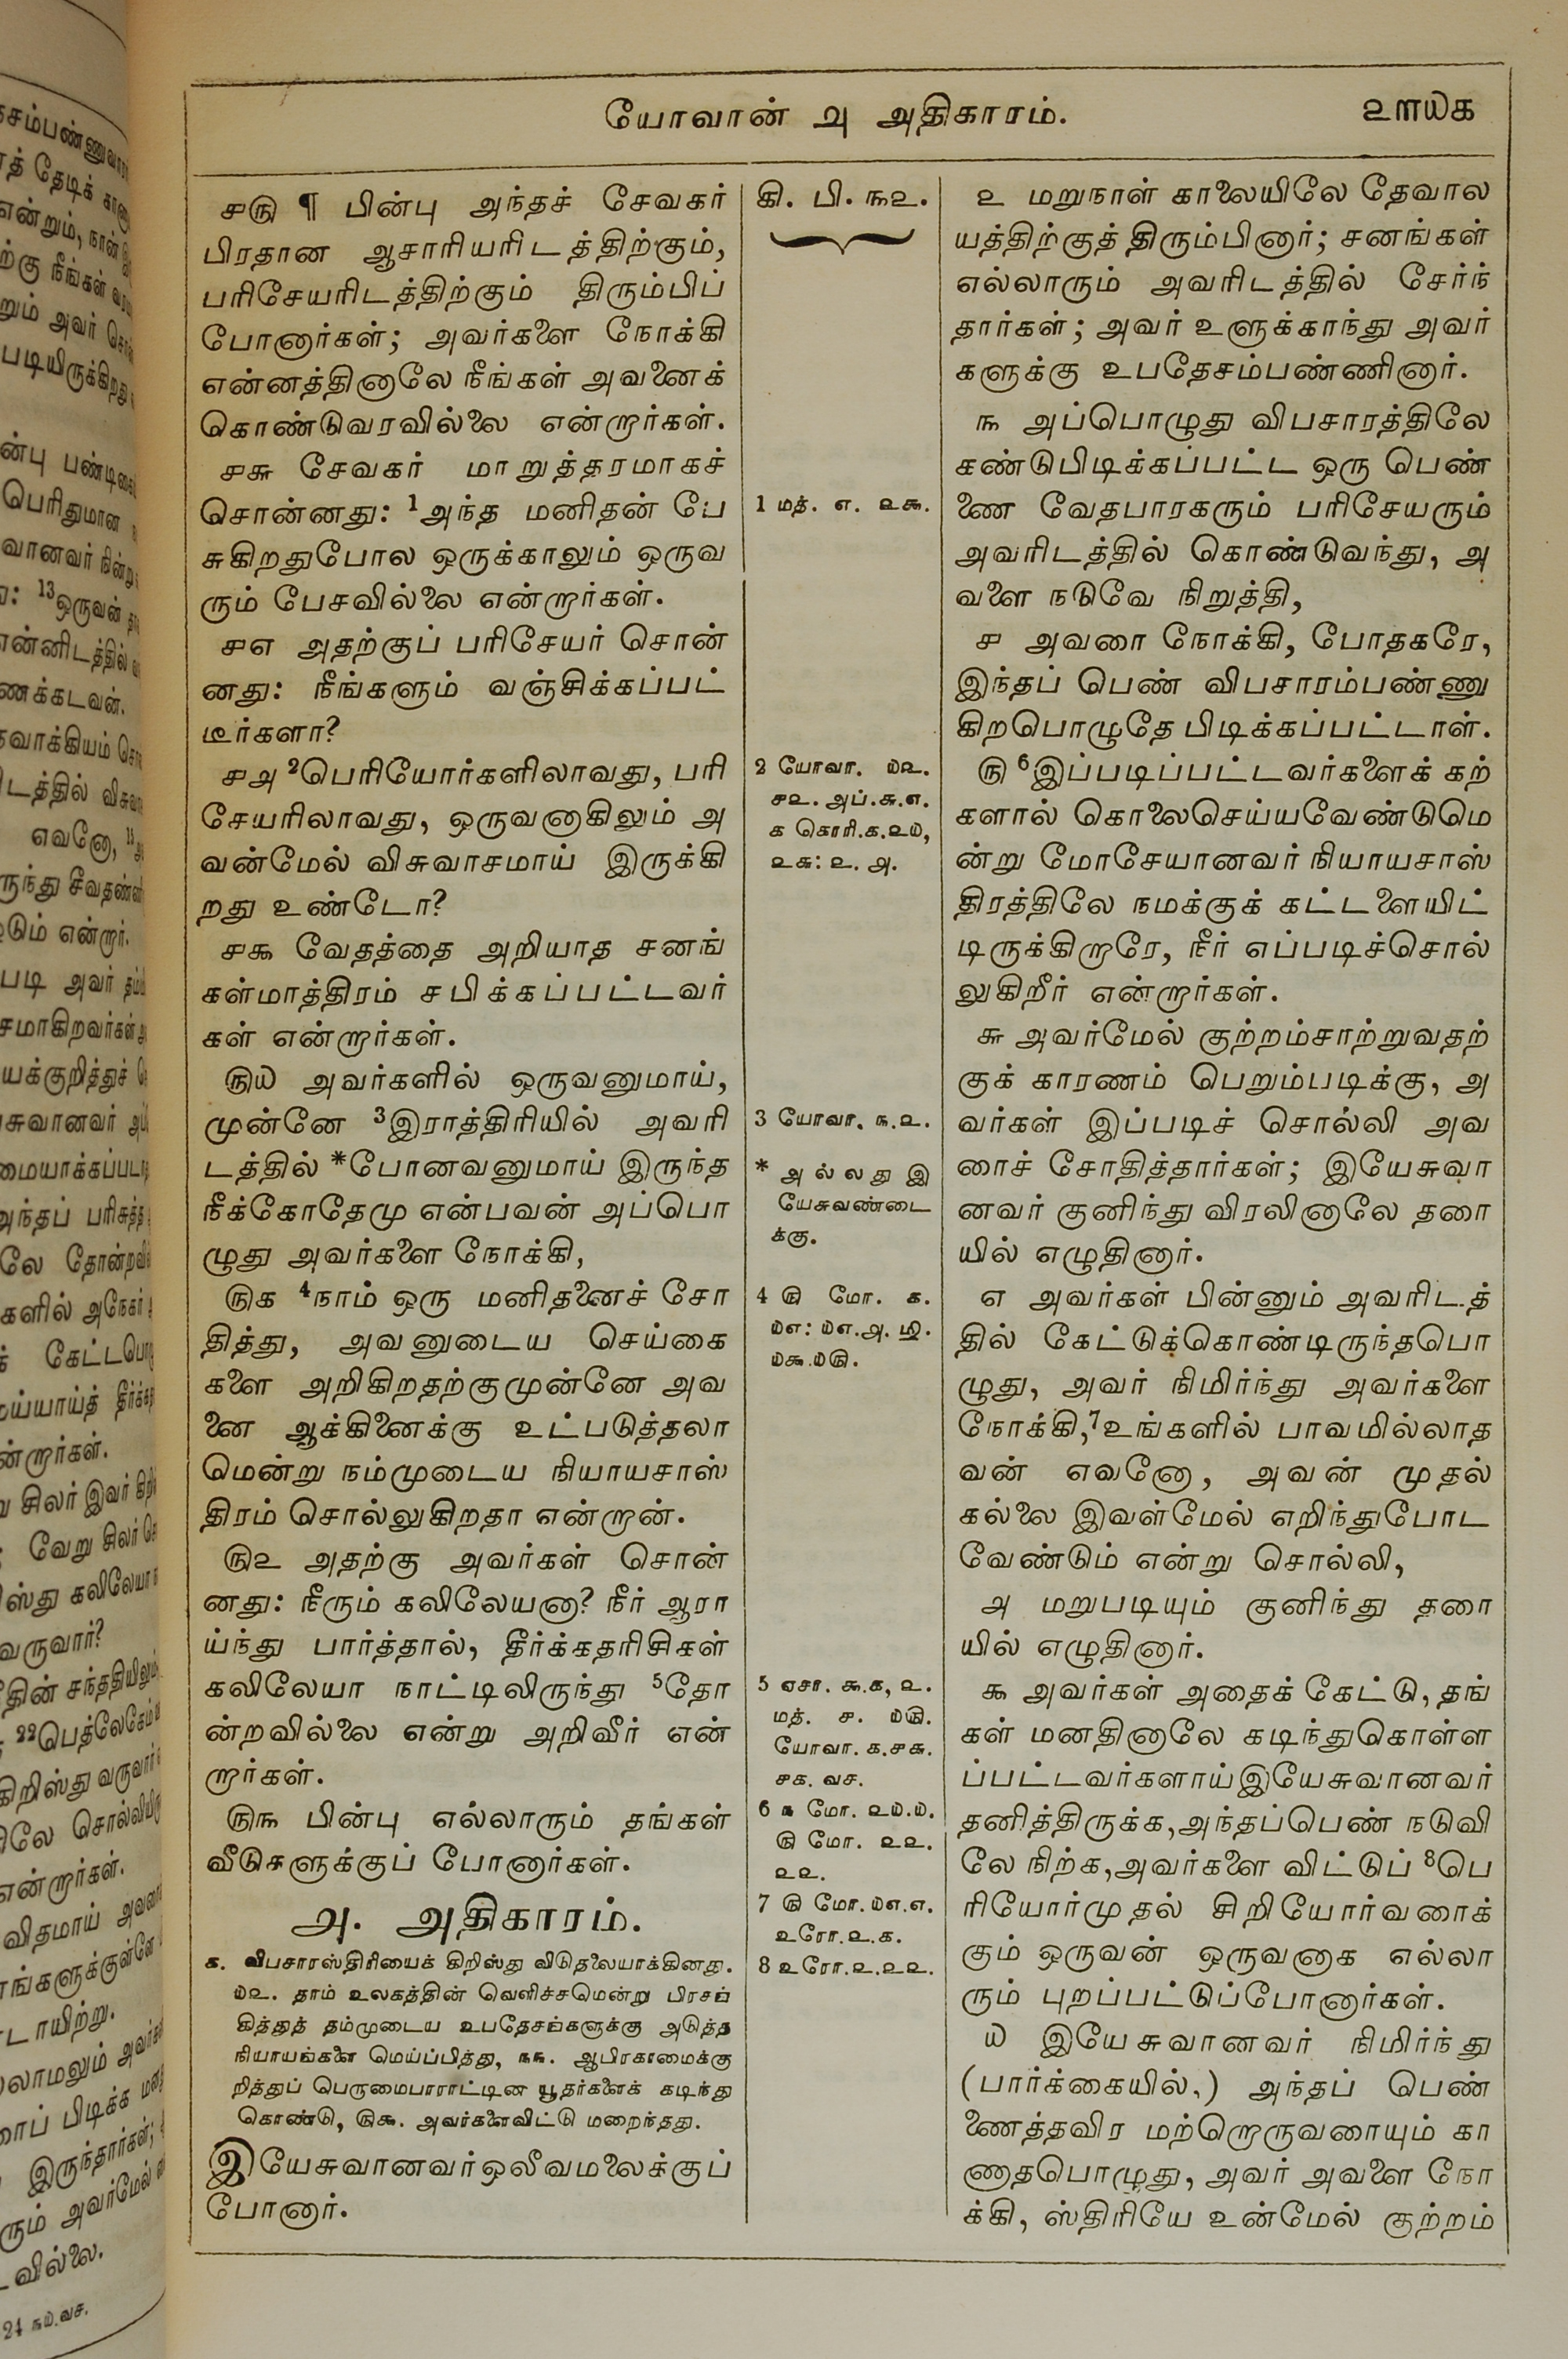 யோவான் ௮ அதிகாரம்.
௨௱௰௧
௪௫ ¶ பின்பு அந்தச் சேவகர்
பிரதான ஆசாரியரிடத்திற்கும்,
பரிசேயரிடத்திற்கும் திரும்பிப்
போனார்கள்; அவர்களை நோக்கி
என்னத்தினாலே நீங்கள் அவனைக்
கொண்டுவரவில்லை என்றார்கள்.
௪௬ சேவகர் மாறுத்தரமாகச்
சொன்னது: 1அந்த மனிதன் பே
சுகிறதுபோல ஒருக்காலும் ஒருவ
ரும் பேசவில்லை என்றார்கள்.
௪௭ அதற்குப் பரிசேயர் சொன்
னது: நீங்களும் வஞ்சிக்கப்பட்
டீர்களா?
௪௮ 2பெரியோர்களிலாவது, பரி
சேயரிலாவது, ஒருவனாகிலும் அ
வன்மேல் விசுவாசமாய் இருக்கி
றது உண்டோ?
௪௯ வேதத்தை அறியாத சனங்
கள்மாத்திரம் சபிக்கப்பட்டவர்
கள் என்றார்கள்.
௫௰ அவர்களில் ஒருவனுமாய்,
முன்னே 3இராத்திரியில் அவரி
டத்தில் *போனவனுமாய் இருந்த
நீக்கோதேமு என்பவன் அப்பொ
ழுது அவர்களை நோக்கி,
௫௧ 4நாம் ஒரு மனிதனைச் சோ
தித்து, அவனுடைய செய்கை
களை அறிகிறதற்குமுன்னே அவ
னை ஆக்கினைக்கு உட்படுத்தலா
மென்று நம்முடைய நியாயசாஸ்
திரம் சொல்லுகிறதா என்றான்.
௫௨ அதற்கு அவர்கள் சொன்
னது: நீரும் கலிலேயனா? நீர் ஆரா
ய்ந்து பார்த்தால், தீர்க்கதரிசிகள்
கலிலேயா நாட்டிலிருந்து 5தோ
ன்றவில்லை என்று அறிவீர் என்
றார்கள்.
௫௩ பின்பு எல்லாரும் தங்கள்
வீடுகளுக்குப் போனார்கள்.
௮. அதிகாரம்.
௧. விபசாரஸ்திரியைக் கிறிஸ்து விடுதலையாக்கினது.
௰௨. தாம் உலகத்தின் வெளிச்சமென்று பிரசங்
கித்துத் தம்முடைய உபதேசங்களுக்கு அடுத்த
நியாயங்களை மெய்ப்பித்து, ௩௩. ஆபிரகாமைக்கு
றித்துப் பெருமைபாராட்டின யூதர்களைக் கடிந்து
கொண்டு, ௫௯. அவர்களைவிட்டு மறைந்தது.
இயேசுவானவர் ஒலீவமலைக்குப்
போனார்.
கி. பி. ௩௨.
1 மத். ௭. ௨௯.
2 யோவா. ௰௨.
௪௨. அப்.௬.௭.
௧ கொரி.௧.௨௰,
௨௬: ௨. ௮.
3 யோவா. ௩.௨.
* அல்லது இ
யேசுவண்டை
க்கு.
4 ௫ மோ. ௧.
௰௭: ௰௭.௮. ௴.
௰௯.௰௫.
5 ஏசா. ௯.௧, ௨.
மத். ௪. ௰௫.
யோவா. ௧.௪௬.
௪௧. வச.
6 ௩ மோ. ௨௰.௰.
௫ மோ. ௨௨.
௨௨.
7 ௫ மோ.௰௭.௭.
உரோ.௨.௧.
8 உரோ.௨.௨௨.
௨ மறுநாள் காலையிலே தேவால
யத்திற்குத் திரும்பினார்; சனங்கள்
எல்லாரும் அவரிடத்தில் சேர்ந்
தார்கள்; அவர் உளுக்காந்து அவர்
களுக்கு உபதேசம்பண்ணினார்.
௩ அப்பொழுது விபசாரத்திலே
கண்டுபிடிக்கப்பட்ட ஒரு பெண்
ணை வேதபாரகரும் பரிசேயரும்
அவரிடத்தில் கொண்டுவந்து, அ
வளை நடுவே நிறுத்தி,
௪ அவரை நோக்கி, போதகரே,
இந்தப் பெண் விபசாரம்பண்ணு
கிறபொழுதே பிடிக்கப்பட்டாள்.
௫ 6இப்படிப்பட்டவர்களைக் கற்
களால் கொலைசெய்யவேண்டுமெ
ன்று மோசேயானவர் நியாயசாஸ்
திரத்திலே நமக்குக் கட்டளையிட்
டிருக்கிறாரே, நீர் எப்படிச்சொல்
லுகிறீர் என்றார்கள்.
௬ அவர்மேல் குற்றம்சாற்றுவதற்
குக் காரணம் பெறும்படிக்கு, அ
வர்கள் இப்படிச் சொல்லி அவ
ரைச் சோதித்தார்கள்; இயேசுவா
னவர் குனிந்து விரலினாலே தரை
யில் எழுதினார்.
௭ அவர்கள் பின்னும் அவரிடத்
தில் கேட்டுக்கொண்டிருந்தபொ
ழுது, அவர் நிமிர்ந்து அவர்களை
நோக்கி,7உங்களில் பாவமில்லாத
வன் எவனோ, அவன் முதல்
கல்லை இவள்மேல் எறிந்துபோட
வேண்டும் என்று சொல்லி,
௮ மறுபடியும் குனிந்து தரை
யில் எழுதினார்.
௯ அவர்கள் அதைக் கேட்டு, தங்
கள் மனதினாலே கடிந்துகொள்ள
ப்பட்டவர்களாய் இயேசுவானவர்
தனித்திருக்க,அந்தப்பெண் நடுவி
லே நிற்க,அவர்களை விட்டுப் 8பெ
ரியோர்முதல் சிறியோர்வரைக்
கும் ஒருவன் ஒருவனாக எல்லா
ரும் புறப்பட்டுப்போனார்கள்.
௰ இயேசுவானவர் நிமிர்ந்து
(பார்க்கையில்,) அந்தப் பெண்
ணைத்தவிர மற்றொருவரையும் கா
ணாதபொழுது, அவர் அவளை நோ
க்கி, ஸ்திரியே உன்மேல் குற்றம்